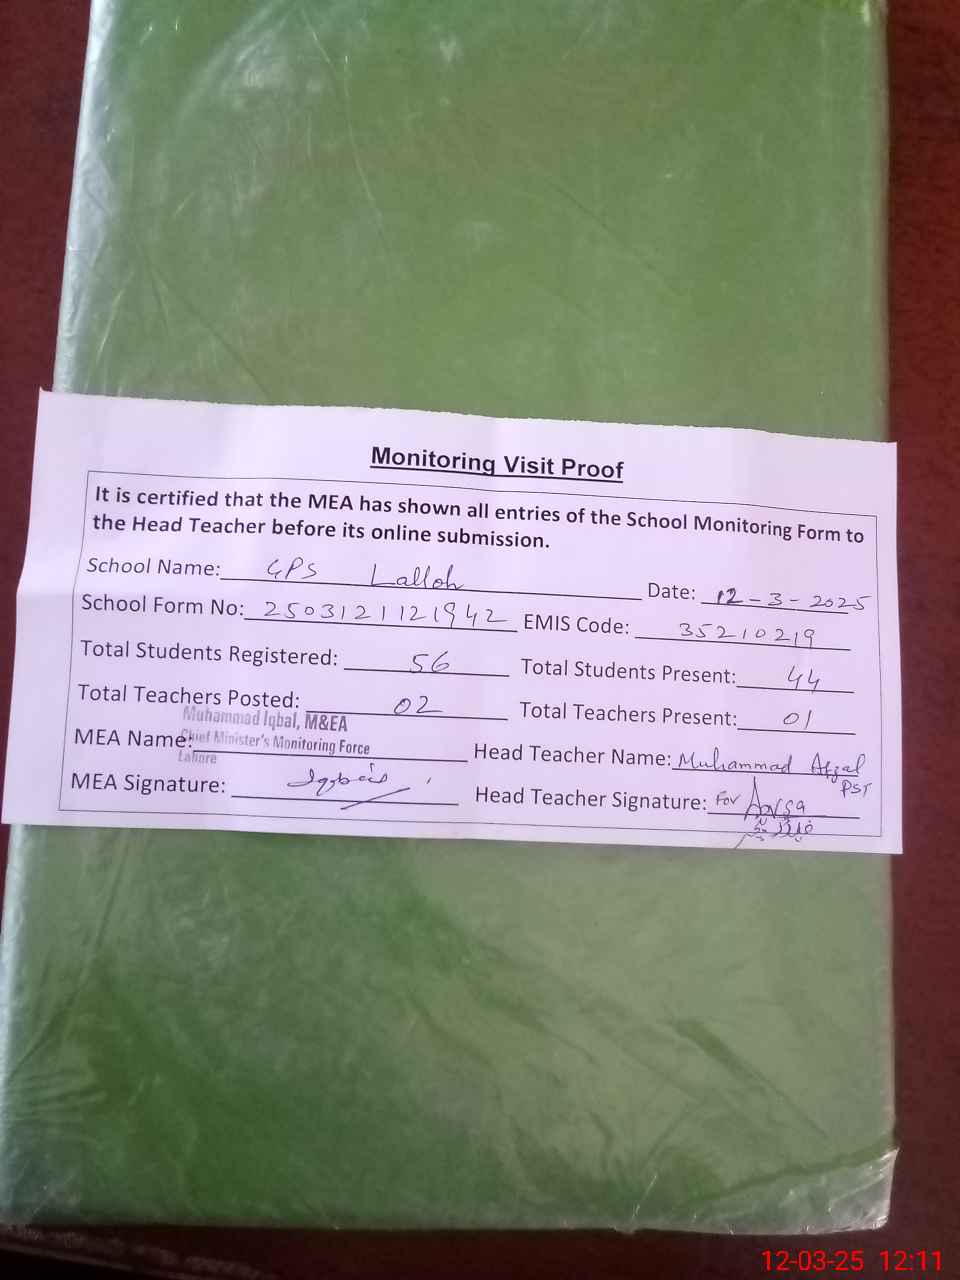 Monitoring Visit Proof
It is certified that the MEA has shown all entries of the School Monitoring Form to
the Head Teacher before its online submission.
School Name: GPS Lalloh Date: 12-3-2025
School Form No: 2503121121942 EMIS Code: 35210219
Total Students Registered: 56 Total Students Present: 44
Total Teachers Posted: 02 Total Teachers Present: 01
Muhammad Iqbal, M&EA
MEA Name: Chief Minister's Monitoring Force Head Teacher Name: Muhammad Afzal
Lahore PST
MEA Signature: Iqbal Head Teacher Signature: For
12-03-25 12:11